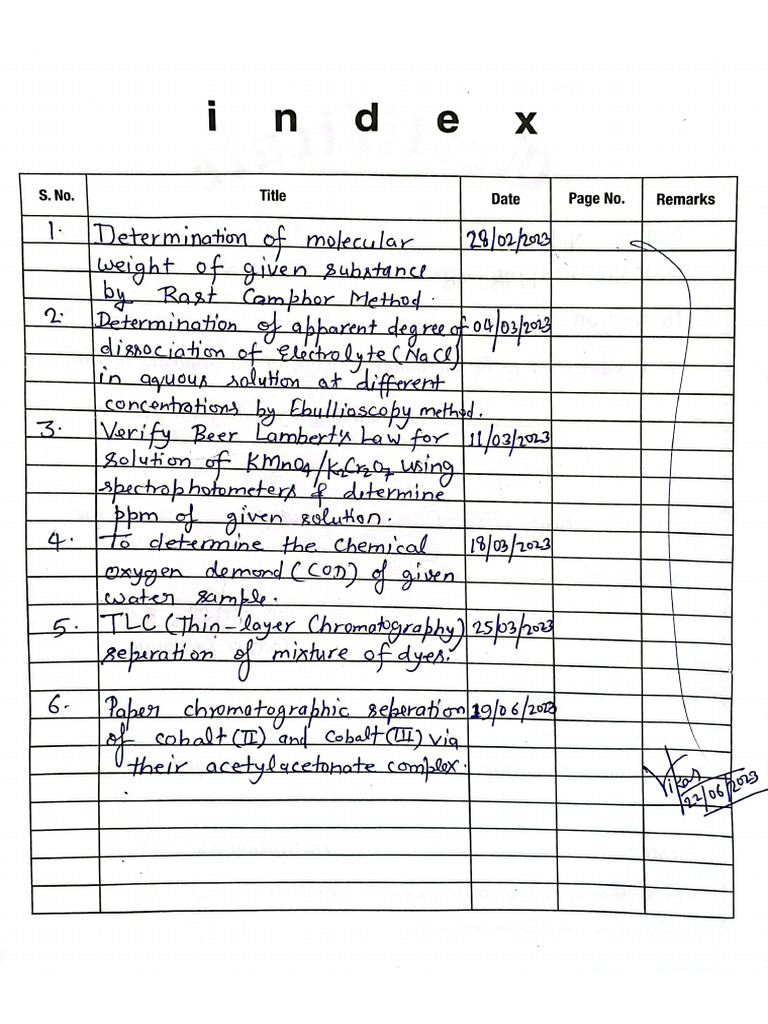 index
S. No. Title Date Page No. Remarks
1. Determination of molecular 28/02/2023
weight of given substance
by Rast Camphor Method.
2. Determination of apparent degree of 04/03/2023
dissociation of Electrolyte (NaCl)
in aquous solution at different
concentrations by Ebullioscopy method.
3. Verify Beer Lambert's Law for 11/03/2023
solution of KMnO4/K2Cr2O7 using
spectrophotometers & determine
ppm of given solution.
4. To determine the Chemical 18/03/2023
oxygen demond (COD) of given
water sample.
5. TLC (Thin-layer Chromatography) 25/03/2023
seperation of mixture of dyes.
6. Paper chromatographic seperation 19/06/2023
of cobalt (II) and cobalt (III) via
their acetylacetonate complex.
Vikas
22/06/2023